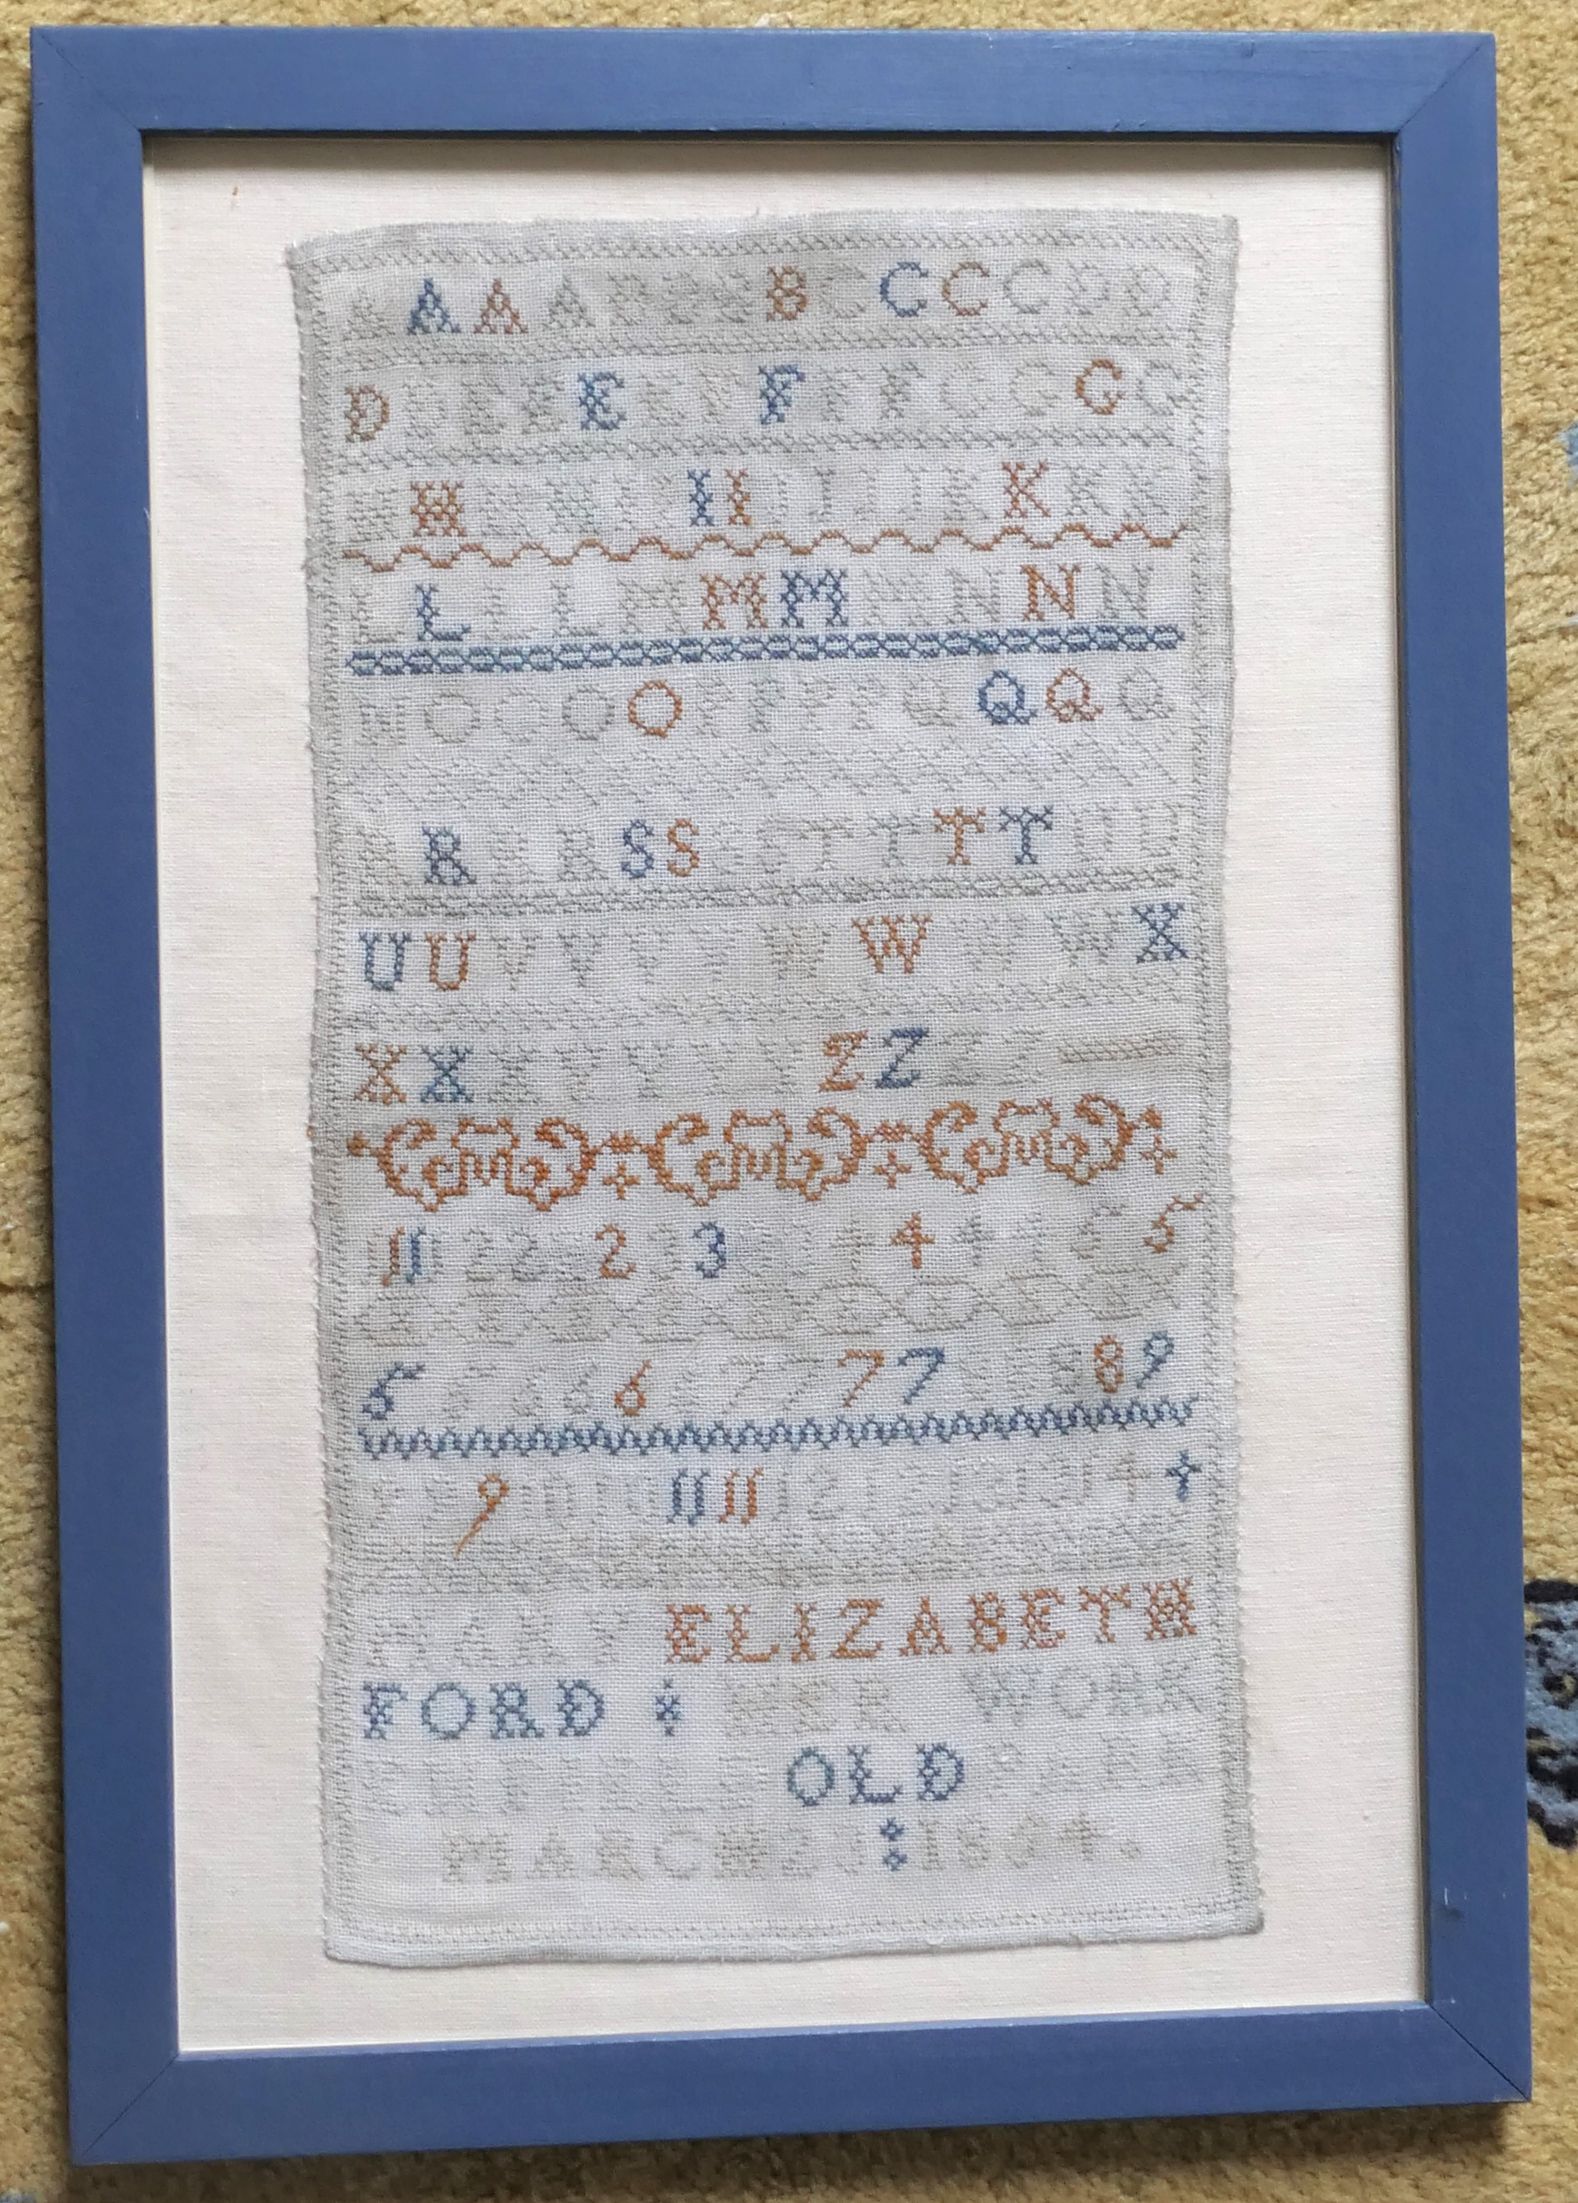 A A A A B B B B C C C C D D
D D E E E E F F F F G G G G
H H H H I I I I J J J J K K K K
L L L L M M M M N N N
N O O O O P P P P Q Q Q Q
R R R R S S S S T T T T U U
U U V V V V W W W W X
X X X Y Y Y Y Z Z Z Z
2 2 2 3 4 4 4 4 5
5 5 6 6 6 7 7 7 7 8 8 9
9 10 10 11 11 12 13 13 14
MARY ELIZABETH
FORD HER WORK
ENFIELD OLD PARK
MARCH